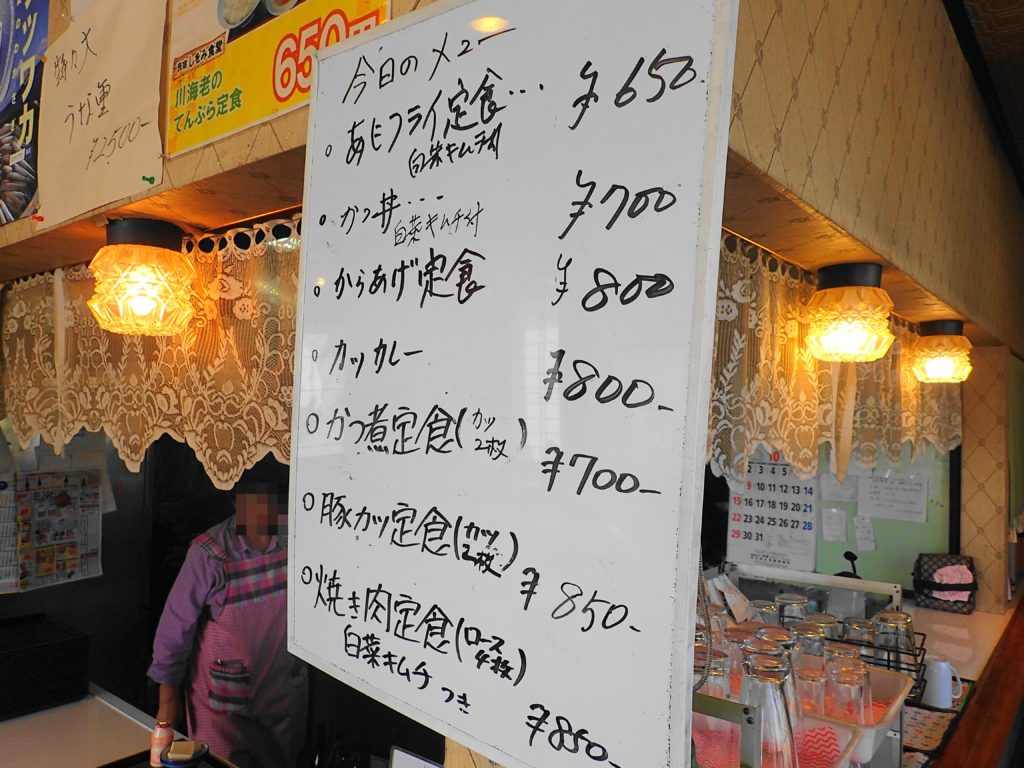 特々大
うな重
¥2500-
しじみ食堂
川海老の
てんぷら定食
650円
今日のメュー
。あじフライ定食… ¥650.
白菜キムチ付
。かつ丼… ¥700
白菜キムチ付
。からあげ定食 ¥800
。カツカレー ¥800-
○かつ煮定食(カツ2枚) ¥700-
○豚カツ定食(カツ2枚) ¥850-
○焼き肉定食(ロース4枚)
白菜キムチつき ¥850-
10